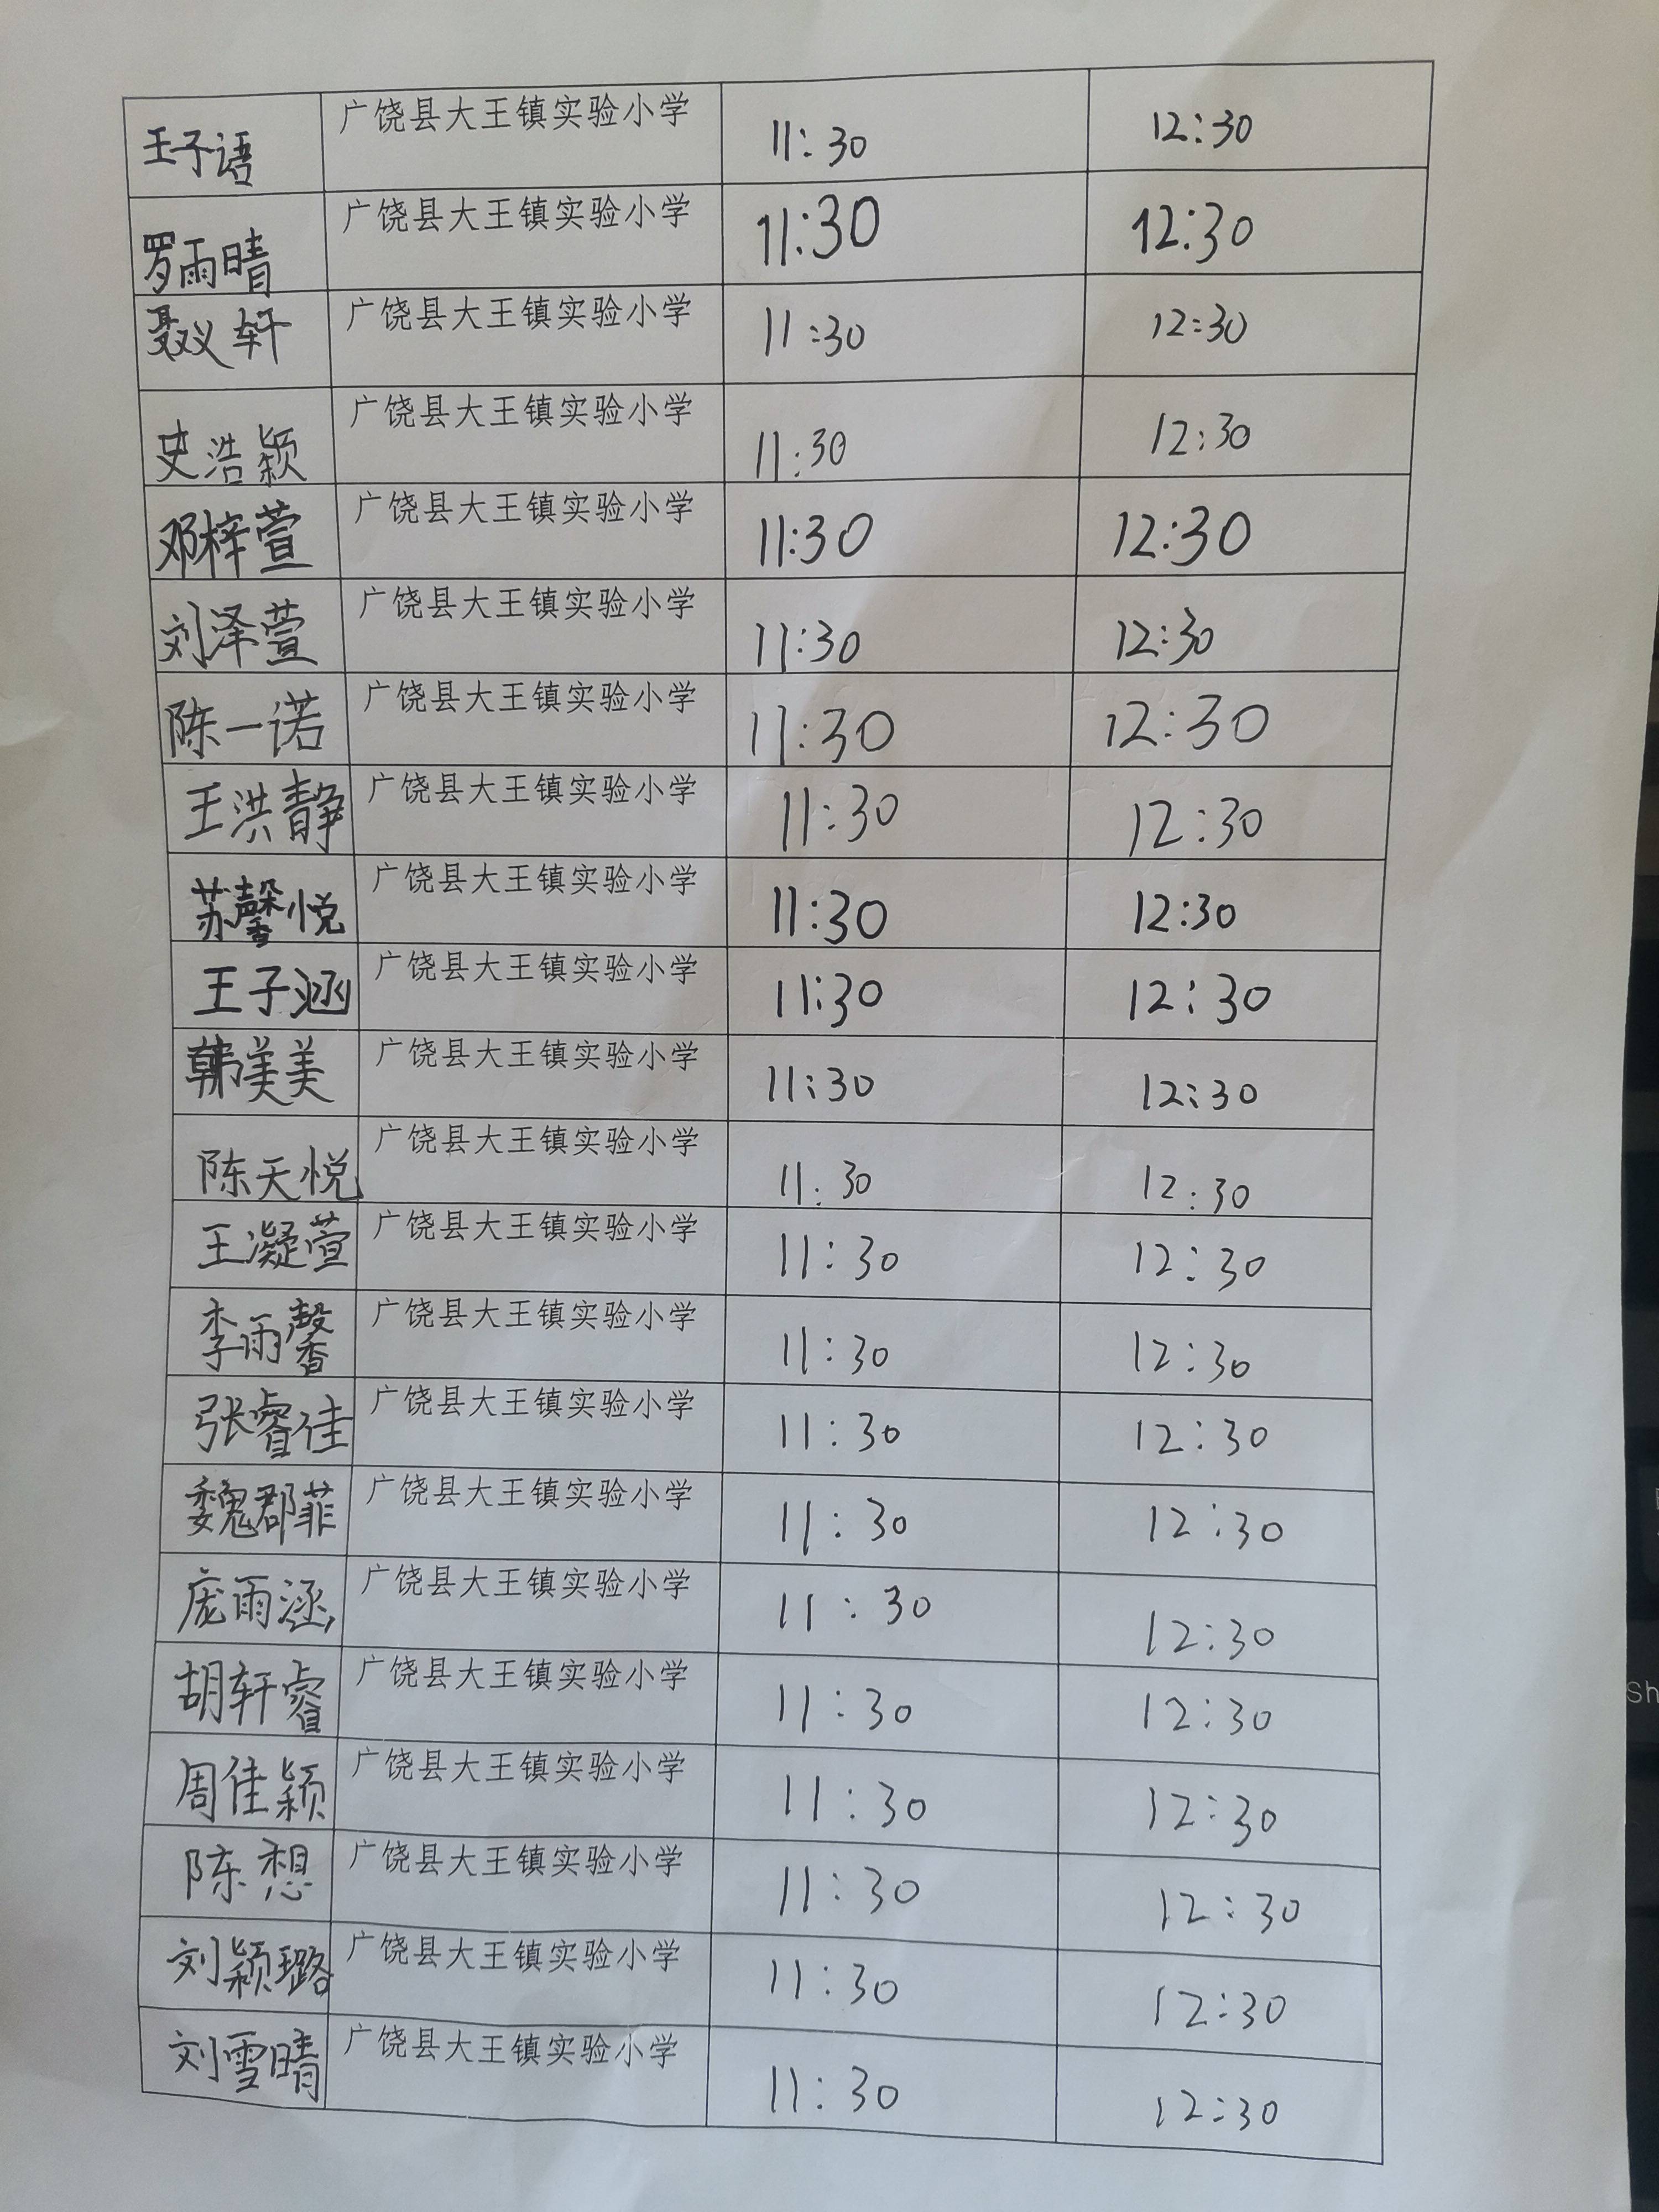 王子语 广饶县大王镇实验小学 11:30 12:30
罗雨晴 广饶县大王镇实验小学 11:30 12:30
聂义轩 广饶县大王镇实验小学 11:30 12:30
史浩颖 广饶县大王镇实验小学 11:30 12:30
邓梓萱 广饶县大王镇实验小学 11:30 12:30
刘泽萱 广饶县大王镇实验小学 11:30 12:30
陈一诺 广饶县大王镇实验小学 11:30 12:30
王洪静 广饶县大王镇实验小学 11:30 12:30
苏馨悦 广饶县大王镇实验小学 11:30 12:30
王子涵 广饶县大王镇实验小学 11:30 12:30
韩美美 广饶县大王镇实验小学 11:30 12:30
陈天悦 广饶县大王镇实验小学 11:30 12:30
王凝萱 广饶县大王镇实验小学 11:30 12:30
李雨馨 广饶县大王镇实验小学 11:30 12:30
张睿佳 广饶县大王镇实验小学 11:30 12:30
魏郡菲 广饶县大王镇实验小学 11:30 12:30
庞雨涵 广饶县大王镇实验小学 11:30 12:30
胡轩睿 广饶县大王镇实验小学 11:30 12:30
周佳颖 广饶县大王镇实验小学 11:30 12:30
陈想 广饶县大王镇实验小学 11:30 12:30
刘颖璐 广饶县大王镇实验小学 11:30 12:30
刘雪晴 广饶县大王镇实验小学 11:30 12:30